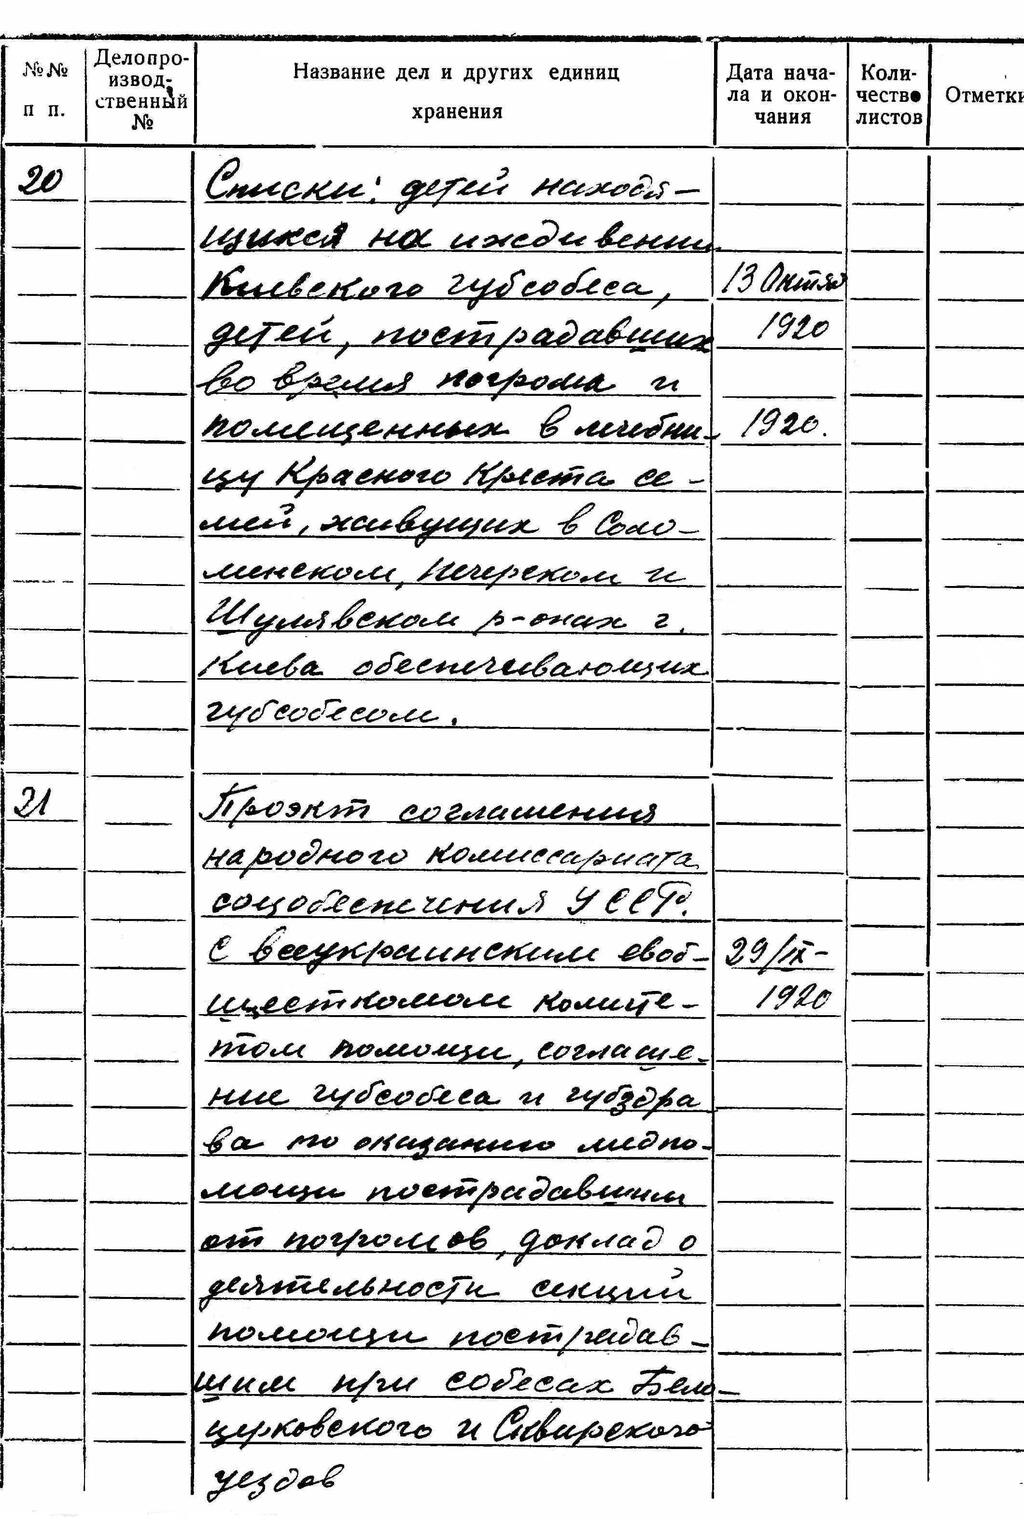 №№ п п.
Делопроизводственный №
Название дел и других единиц хранения
Дата начала и окончания
Количество листов
Отметки
20
Списки: детей находя-
щихся на иждивении
Киевского губсобеса,
13 Октяб
детей, пострадавших
1920
во время погрома и
помещенных в лечебни-
1920.
цу Красного Креста се-
мей, живущих в Соло-
менском, Печерском и
Шулявском р-онах г.
Киева обеспечивающих
губсобесом.
21
Проэкт соглашения
народного комиссариата
соцобеспечения УССР.
с всеукраинским евоб-
29/IX-
щесткомом комите-
1920
том помощи, соглаше-
ние губсобеса и губздра
ва по оказанию медпо-
мощи пострадавшим
от погромов, доклад о
деятельности секций
помощи пострадав-
шим при собесах Бело-
церковского и Сквирского
уездов